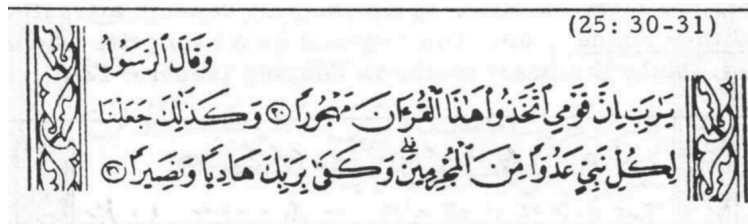 (25: 30-31)
وَقَالَ ٱلرَّسُولُ
يَـٰرَبِّ إِنَّ قَوْمِى ٱتَّخَذُوا۟ هَـٰذَا ٱلْقُرْءَانَ مَهْجُورًا ٣٠ وَكَذَٰلِكَ جَعَلْنَا
لِكُلِّ نَبِىٍّ عَدُوًّا مِّنَ ٱلْمُجْرِمِينَ ۗ وَكَفَىٰ بِرَبِّكَ هَادِيًا وَنَصِيرًا ٣١